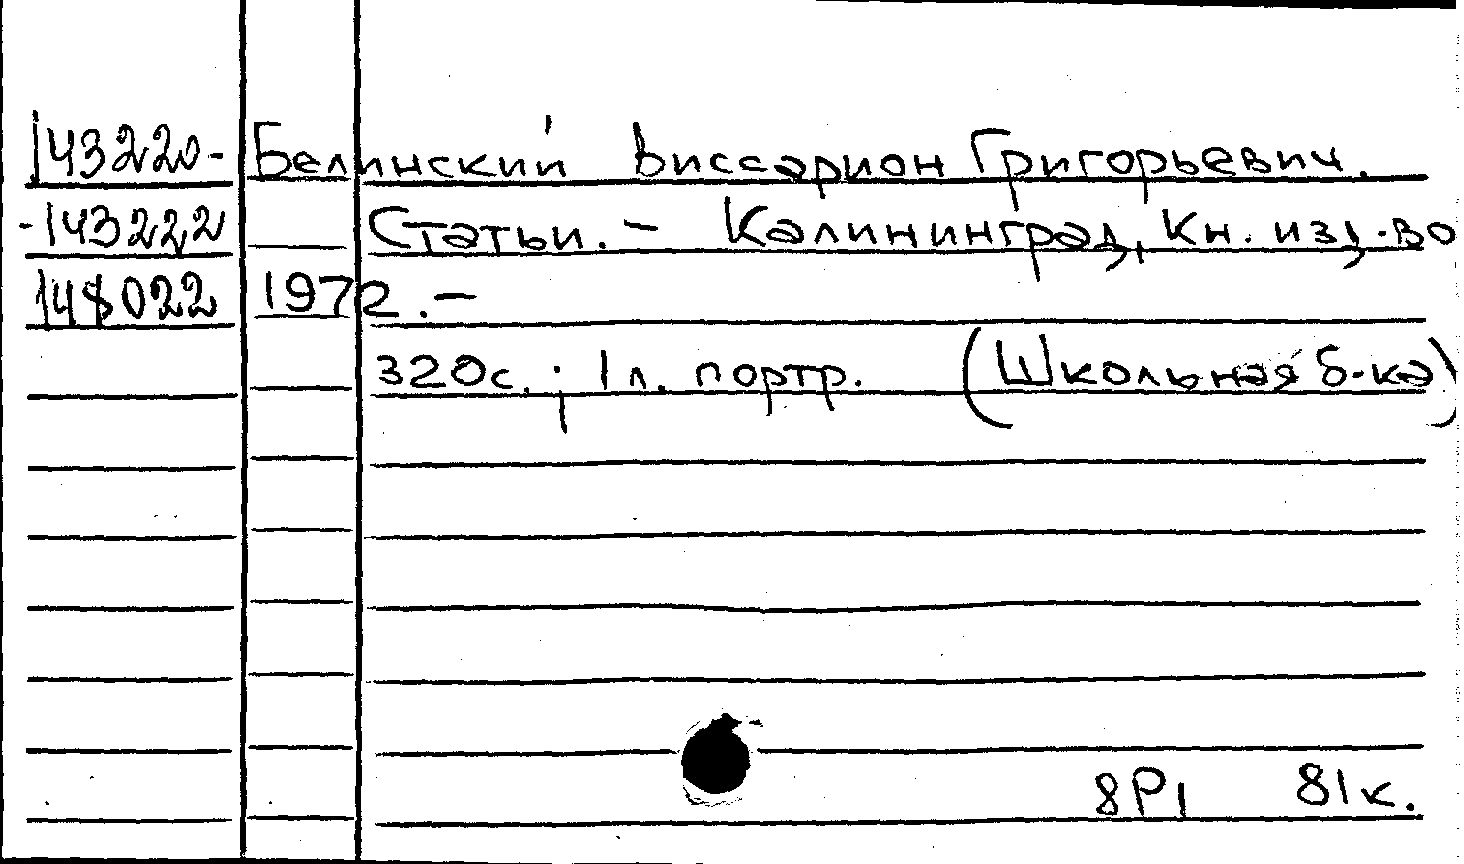 143220- Белинский Виссарион Григорьевич.
-143222 Статьи. – Калининград, Кн. изд-во
148022 1972. –
320с. ; 1 л. портр. (Школьная б-ка)
8Р1 81к.